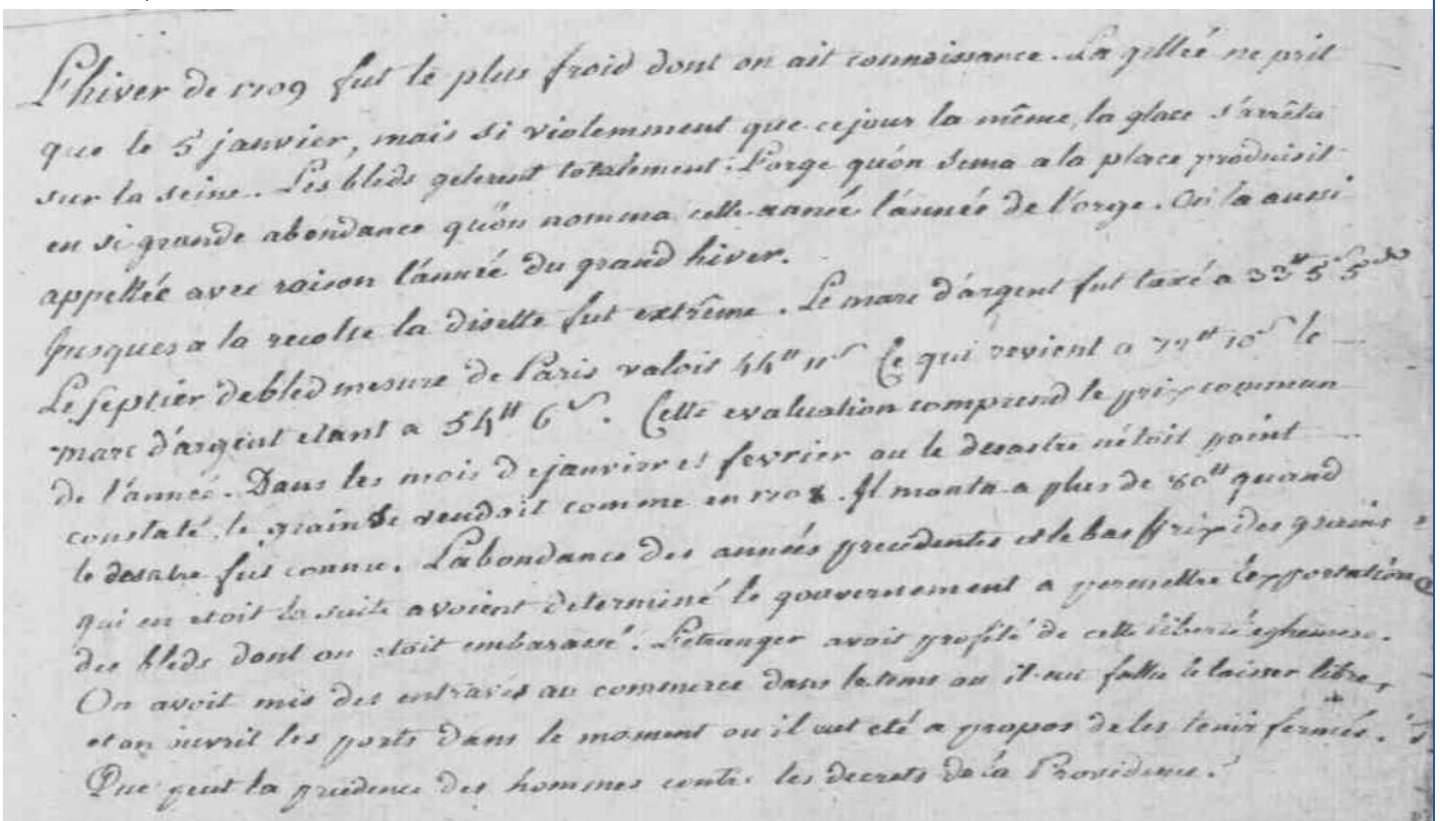 L'hiver de 1709 fut le plus froid dont on ait connoissance. La gellée ne prit
que le 5 janvier, mais si violemment que ce jour la même, la glace s'arrêta
sur la seine. Les bleds gelerent totalement. L'orge qu'on sema a la place produisit
en si grande abondance qu'on nomma cette année l'année de l'orge. On la aussi
appellée avec raison l'année du grand hiver.
Jusques a la recolte la disette fut extrême. Le marc d'argent fut taxé a 33# 5s 5d
Le septier de bled mesure de Paris valoit 44# 11s Ce qui revient a le
marc d'argent etant a 54# 6s. Cette evaluation comprend le prix commun
de l'année. Dans les mois de janvier et fevrier ou le desastre n'étoit point
constaté, le grain se vendoit comme en 1708. Il monta a plus de 80# quand
le desastre fut connu. Labondance des années precedentes et le bas prix des grains
qui en etoit la suite avoient determiné le gouvernement a permettre l'exportation
des bleds dont on etoit embarassé. L'etranger avoit profité de cette liberté ephemere.
On avoit mis des entraves au commerce dans le tems ou il eut fallu le laisser libre,
et on ouvrit les ports dans le moment ou il eut eté a propos de les tenir fermés.
Que peut la prudence des hommes contre les decrets de la Providence!